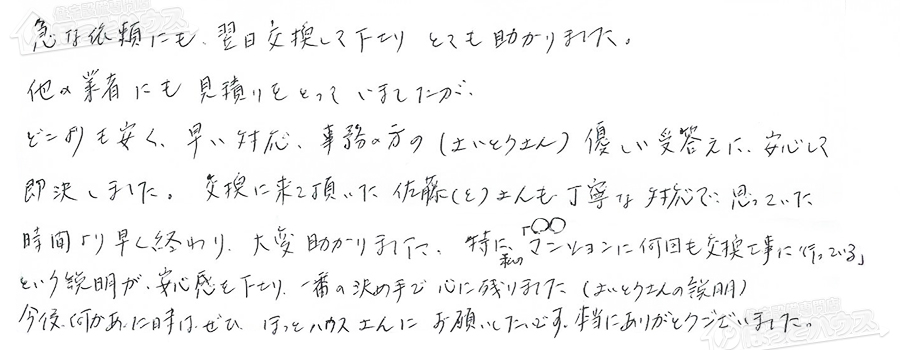 急な依頼にも、翌日交換して下さり とても助かりました。
他の業者にも見積りをとっていましたが、
どこよりも安く、早い対応、事務の方の(さいとうさん)優しい受答えに、安心して
即決しました。交換に来て頂いた佐藤(と)さんも丁寧な対応で、思っていた
時間より早く終わり、大変助かりました、特に、私の「○○マンションに何回も交換工事に行っている」
という説明が、安心感を下さり、一番の決め手で心に残りました(さいとうさんの説明)
今後、何かあった時は、ぜひ ほっとハウスさんに お願いしたいです。本当にありがとうございました。